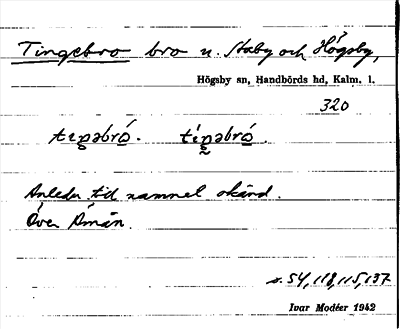 Tingebro bro n. Staby och Högsby,
Högsby sn, Handbörds hd, Kalm. l.
320
tiŋəbró. tíŋəbró.
Anledn. till namnet okänd.
Över Åmån.
s. 54, 118, 115, 137
Ivar Modéer 1942